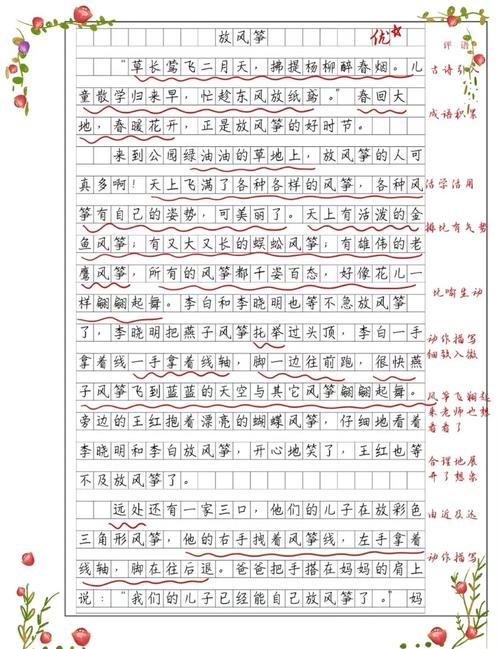 放风筝
优
评语
“草长莺飞二月天，拂提杨柳醉春烟。儿
古诗引入
童散学归来早，忙趁东风放纸鸢。”春回大
成语积累
地，春暖花开，正是放风筝的好时节。
来到公园绿油油的草地上，放风筝的人可
真多啊！天上飞满了各种各样的风筝，各种风
活学活用
筝有自己的姿势，可美丽了。天上有活泼的金
排比有气势
鱼风筝；有又大又长的蜈蚣风筝；有雄伟的老
鹰风筝，所有的风筝都千姿百态，好像花儿一
比喻生动
样翩翩起舞。李白和李晓明也等不急放风筝
了，李晓明把燕子风筝托举过头顶，李白一手
动作描写
细致入微
拿着线一手拿着线轴，脚一边往前跑，很快燕
子风筝飞到蓝蓝的天空与其它风筝翩翩起舞。
风筝飞翔起
来老师也想
看看了
旁边的王红抱着漂亮的蝴蝶风筝，仔细地看着
李晓明和李白放风筝，开心地笑了，王红也等
合理地展
开了想象
不及放风筝了。
远处还有一家三口，他们的儿子在放彩色
由近及远
三角形风筝，他的右手找着风筝线，左手拿着
线轴，脚在往后退。爸爸把手搭在妈妈的肩上
动作描写
说：“我们的儿子已经能自己放风筝了”妈